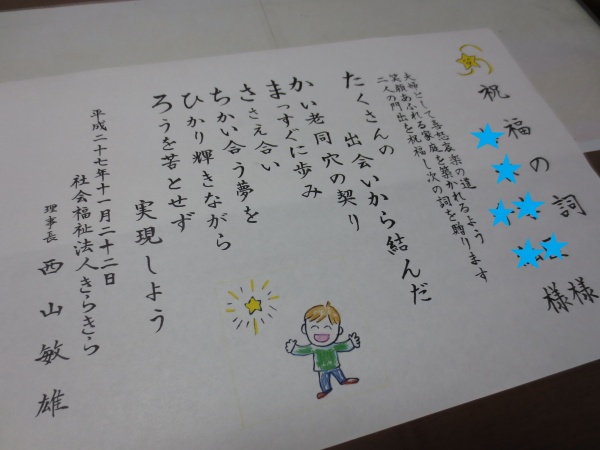 祝福の詞
様
様
夫婦として喜怒哀楽の道
笑顔あふれる家庭を築かれるよう
二人の門出を祝福し次の詞を贈ります
たくさんの
出会いから結んだ
かい老同穴の契り
まっすぐに歩み
ささえ合い
ちかい合う夢を
ひかり輝きながら
ろうを苦とせず
実現しよう
平成二十七年十一月二十二日
社会福祉法人きらきら
理事長 西山敏雄